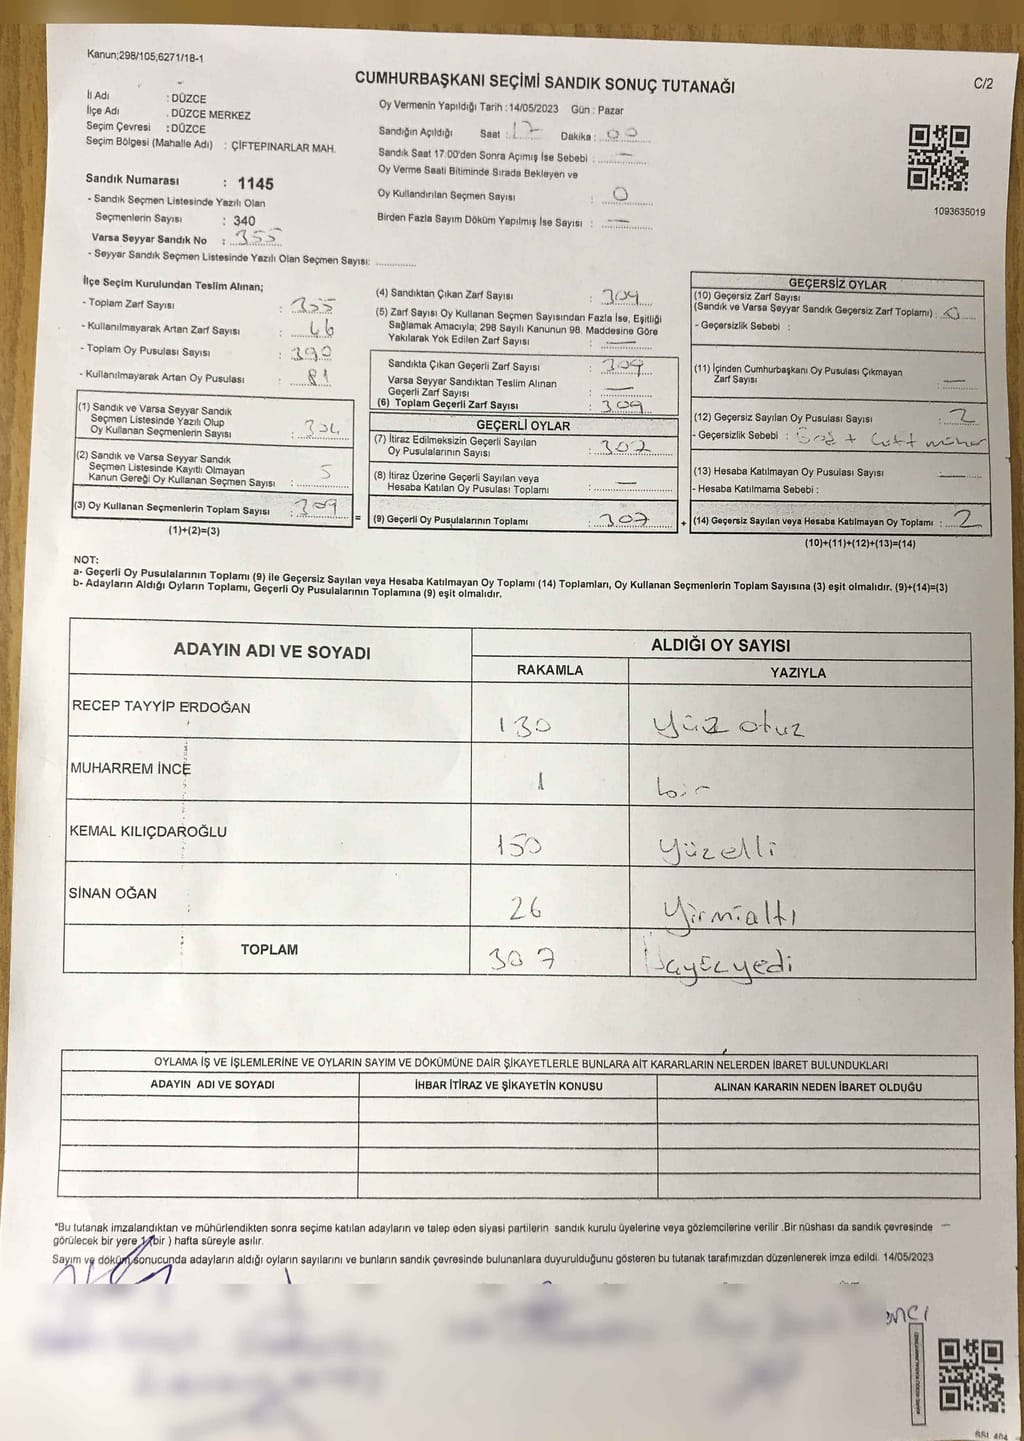 Kanun;298/105,6271/18-1
CUMHURBAŞKANI SEÇİMİ SANDIK SONUÇ TUTANAĞI
C/2
İl Adı : DÜZCE
İlçe Adı . DÜZCE MERKEZ
Seçim Çevresi : DÜZCE
Seçim Bölgesi (Mahalle Adı) : ÇİFTEPINARLAR MAH.
Oy Vermenin Yapıldığı Tarih :14/05/2023 Gün : Pazar
Sandığın Açıldığı Saat : 17 Dakika : 00
Sandık Saat 17:00'den Sonra Açımış İse Sebebi : —
Oy Verme Saati Bitiminde Sırada Bekleyen ve
Oy Kullandırılan Seçmen Sayısı : 0
Birden Fazla Sayım Döküm Yapılmış İse Sayısı : —
1093635019
Sandık Numarası : 1145
- Sandık Seçmen Listesinde Yazılı Olan
Seçmenlerin Sayısı : 340
Varsa Seyyar Sandık No : 355
- Seyyar Sandık Seçmen Listesinde Yazılı Olan Seçmen Sayısı:
İlçe Seçim Kurulundan Teslim Alınan;
- Toplam Zarf Sayısı : 355
- Kullanılmayarak Artan Zarf Sayısı : 46
- Toplam Oy Pusulası Sayısı : 390
- Kullanılmayarak Artan Oy Pusulası : 81
(1) Sandık ve Varsa Seyyar Sandık
Seçmen Listesinde Yazılı Olup
Oy Kullanan Seçmenlerin Sayısı : 304
(2) Sandık ve Varsa Seyyar Sandık
Seçmen Listesinde Kayıtlı Olmayan
Kanun Gereği Oy Kullanan Seçmen Sayısı : 5
(3) Oy Kullanan Seçmenlerin Toplam Sayısı : 309
(1)+(2)=(3)
=
(4) Sandıktan Çıkan Zarf Sayısı : 309
(5) Zarf Sayısı Oy Kullanan Seçmen Sayısından Fazla İse, Eşitliği
Sağlamak Amacıyla; 298 Sayılı Kanunun 98. Maddesine Göre
Yakılarak Yok Edilen Zarf Sayısı : —
Sandıkta Çıkan Geçerli Zarf Sayısı : 309
Varsa Seyyar Sandıktan Teslim Alınan
Geçerli Zarf Sayısı : —
(6) Toplam Geçerli Zarf Sayısı : 309
GEÇERLİ OYLAR
(7) İtiraz Edilmeksizin Geçerli Sayılan
Oy Pusulalarının Sayısı : 307
(8) İtiraz Üzerine Geçerli Sayılan veya
Hesaba Katılan Oy Pusulası Toplamı : —
(9) Geçerli Oy Pusulalarının Toplamı : 307
+
GEÇERSİZ OYLAR
(10) Geçersiz Zarf Sayısı
(Sandık ve Varsa Seyyar Sandık Geçersiz Zarf Toplamı) : 0
- Geçersizlik Sebebi :
(11) İçinden Cumhurbaşkanı Oy Pusulası Çıkmayan
Zarf Sayısı : —
(12) Geçersiz Sayılan Oy Pusulası Sayısı : 2
- Geçersizlik Sebebi : + Çift mühür
(13) Hesaba Katılmayan Oy Pusulası Sayısı : —
- Hesaba Katılmama Sebebi :
(14) Geçersiz Sayılan veya Hesaba Katılmayan Oy Toplamı : 2
(10)+(11)+(12)+(13)=(14)
NOT:
a- Geçerli Oy Pusulalarının Toplamı (9) ile Geçersiz Sayılan veya Hesaba Katılmayan Oy Toplamı (14) Toplamları, Oy Kullanan Seçmenlerin Toplam Sayısına (3) eşit olmalıdır. (9)+(14)=(3)
b- Adayların Aldığı Oyların Toplamı, Geçerli Oy Pusulalarının Toplamına (9) eşit olmalıdır.
ADAYIN ADI VE SOYADI ALDIĞI OY SAYISI
RAKAMLA YAZIYLA
RECEP TAYYİP ERDOĞAN 130 Yüz otuz
MUHARREM İNCE 1 bir
KEMAL KILIÇDAROĞLU 150 Yüzelli
SİNAN OĞAN 26 Yirmialtı
TOPLAM 307 üçyüzyedi
OYLAMA İŞ VE İŞLEMLERİNE VE OYLARIN SAYIM VE DÖKÜMÜNE DAİR ŞİKAYETLERLE BUNLARA AİT KARARLARIN NELERDEN İBARET BULUNDUKLARI
ADAYIN ADI VE SOYADI İHBAR İTİRAZ VE ŞİKAYETİN KONUSU ALINAN KARARIN NEDEN İBARET OLDUĞU
*Bu tutanak imzalandıktan ve mühürlendikten sonra seçime katılan adayların ve talep eden siyasi partilerin sandık kurulu üyelerine veya gözlemcilerine verilir .Bir nüshası da sandık çevresinde
görülecek bir yere 1 (bir ) hafta süreyle asılır.
Sayım ve döküm sonucunda adayların aldığı oyların sayılarını ve bunların sandık çevresinde bulunanlara duyurulduğunu gösteren bu tutanak tarafımızdan düzenlenerek imza edildi. 14/05/2023